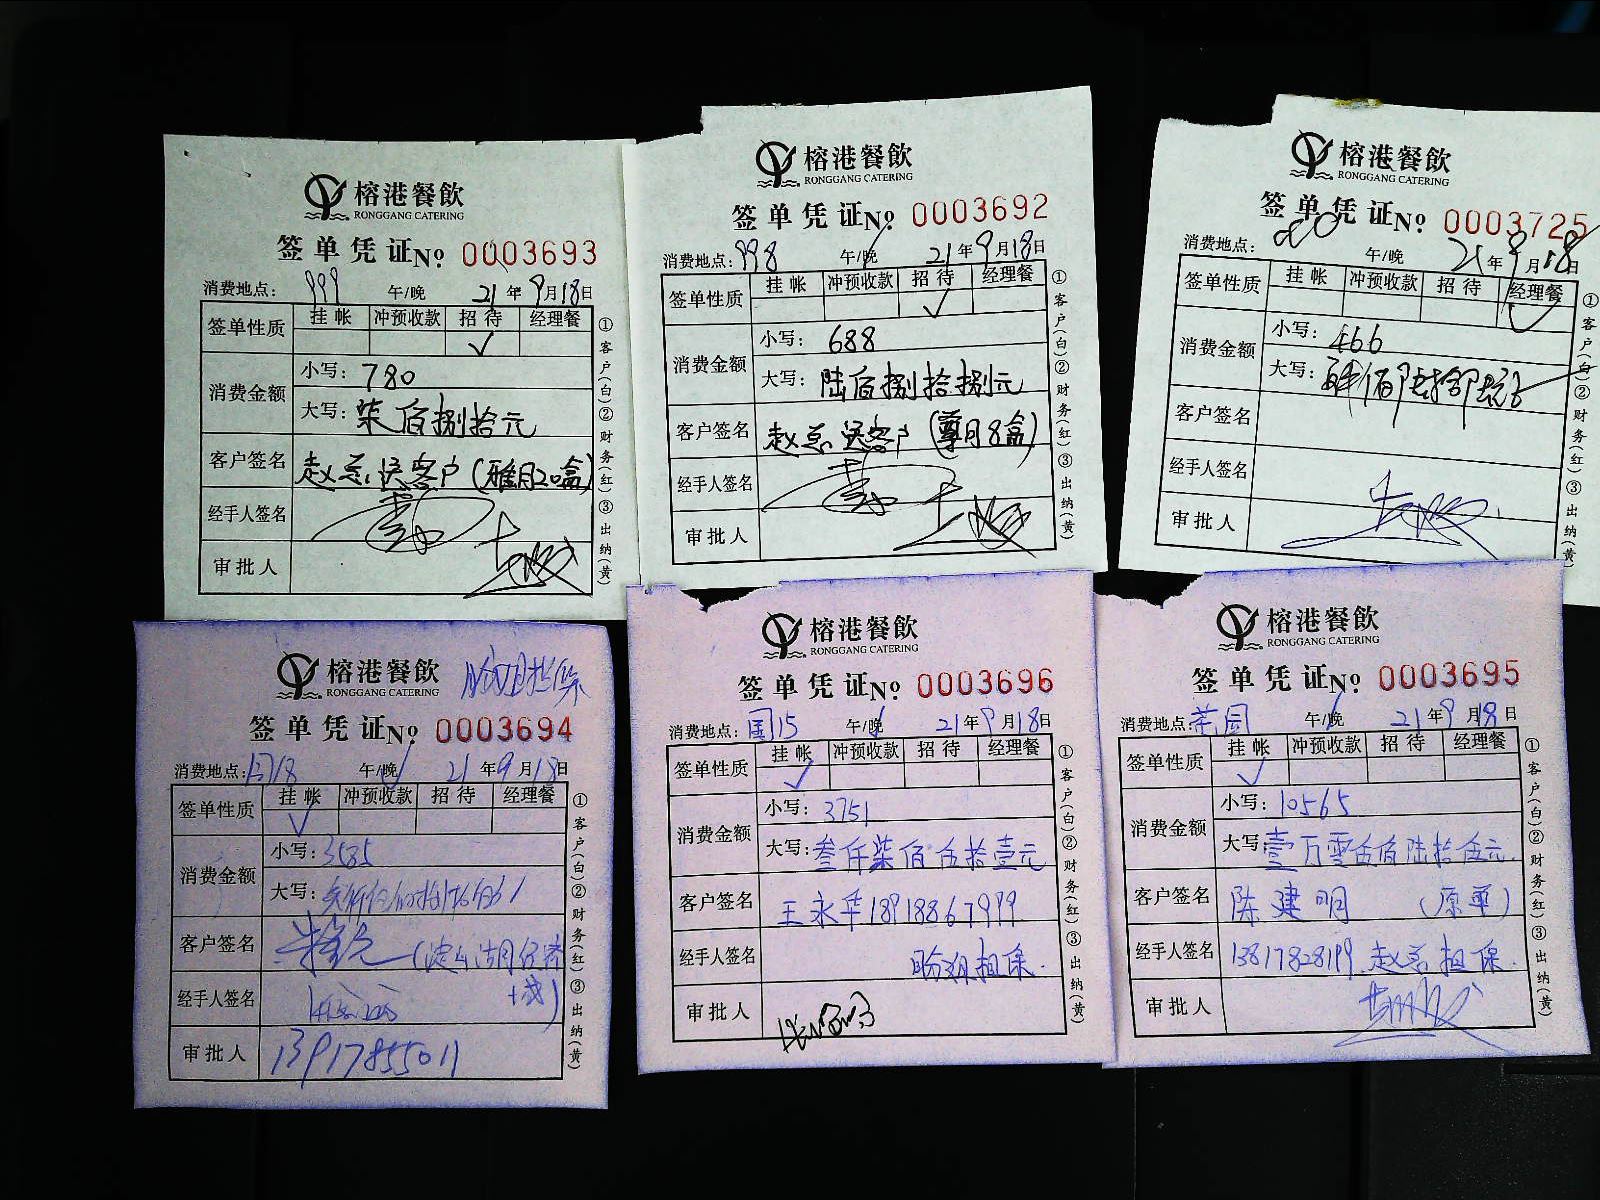 榕港餐飲
RONGGANG CATERING
签单凭证№ 0003693
消费地点：999 午/晚 21年9月18日
签单性质 挂帐 冲预收款 招待 经理餐
✓
消费金额 小写：780
大写：柒佰捌拾元
客户签名 赵总送客户（雅月20盒）
经手人签名
审批人
①客户（白）②财务（红）③出纳（黄）
榕港餐飲
RONGGANG CATERING
签单凭证№ 0003692
消费地点：998 午/晚 21年9月18日
签单性质 挂帐 冲预收款 招待 经理餐
✓
消费金额 小写：688
大写：陆佰捌拾捌元
客户签名 赵总送客户（尊月8盒）
经手人签名
审批人
①客户（白）②财务（红）③出纳（黄）
榕港餐飲
RONGGANG CATERING
签单凭证№ 0003725
消费地点： 午/晚 21年9月18日
签单性质 挂帐 冲预收款 招待 经理餐
✓
消费金额 小写：466
大写：肆佰陆拾陆元
客户签名
经手人签名
审批人
①客户（白）②财务（红）③出纳（黄）
榕港餐飲
RONGGANG CATERING
签单凭证№ 0003694
消费地点： 午/晚 21年9月18日
签单性质 挂帐 冲预收款 招待 经理餐
✓
消费金额 小写：3585
大写：
客户签名
经手人签名
审批人 13917855011
①客户（白）②财务（红）③出纳（黄）
榕港餐飲
RONGGANG CATERING
签单凭证№ 0003696
消费地点：国15 午/晚 21年9月18日
签单性质 挂帐 冲预收款 招待 经理餐
✓
消费金额 小写：3751
大写：叁仟柒佰伍拾壹元
客户签名 王永华18918867999
经手人签名 担保.
审批人
①客户（白）②财务（红）③出纳（黄）
榕港餐飲
RONGGANG CATERING
签单凭证№ 0003695
消费地点：茶园 午/晚 21年9月18日
签单性质 挂帐 冲预收款 招待 经理餐
✓
消费金额 小写：10565
大写：壹万零伍佰陆拾伍元.
客户签名 陈建明（原单）
经手人签名 13817828199 赵总担保.
审批人
①客户（白）②财务（红）③出纳（黄）